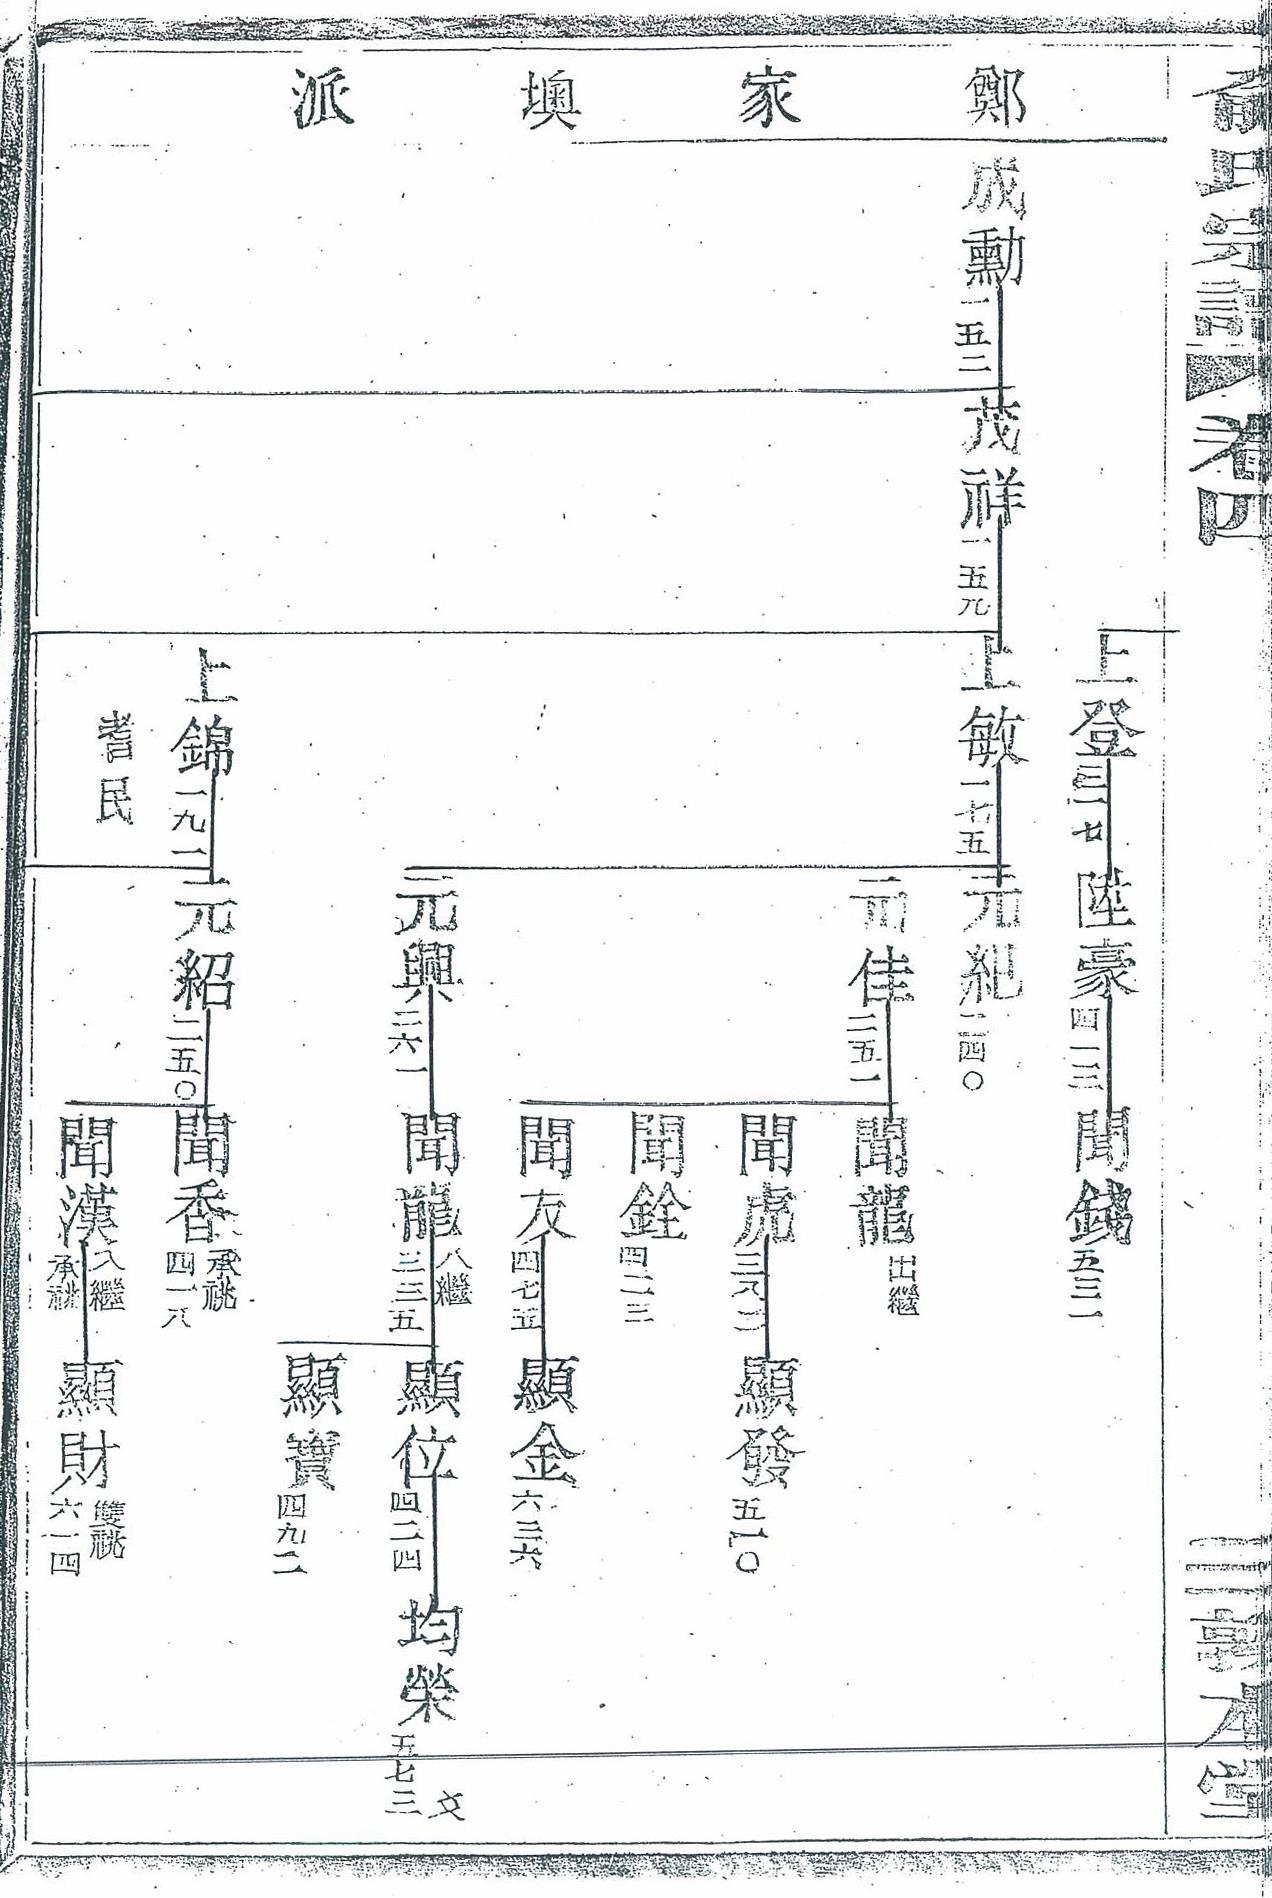 氏宗譜 卷四
敦本堂
鄭家墺派
上登 三一七
陸豪 四一三
聞錢 五三一
成勳 一五二
茂祥 一五九
上敏 一七五
元紀 二四〇
元佳 二五一
聞龍 出繼
聞虎
顯發 五一〇
聞銓 四二三
聞友 四七五
顯金 六三六
元興 二六一
聞龍 入繼 三三五
顯位 四二四
均榮 五七三 文
顯寶 四九二
上錦 一九一
耆民
元紹 二五〇
聞香 承祧 四一八
聞漢 入繼 承祧
顯財 雙祧 六一四